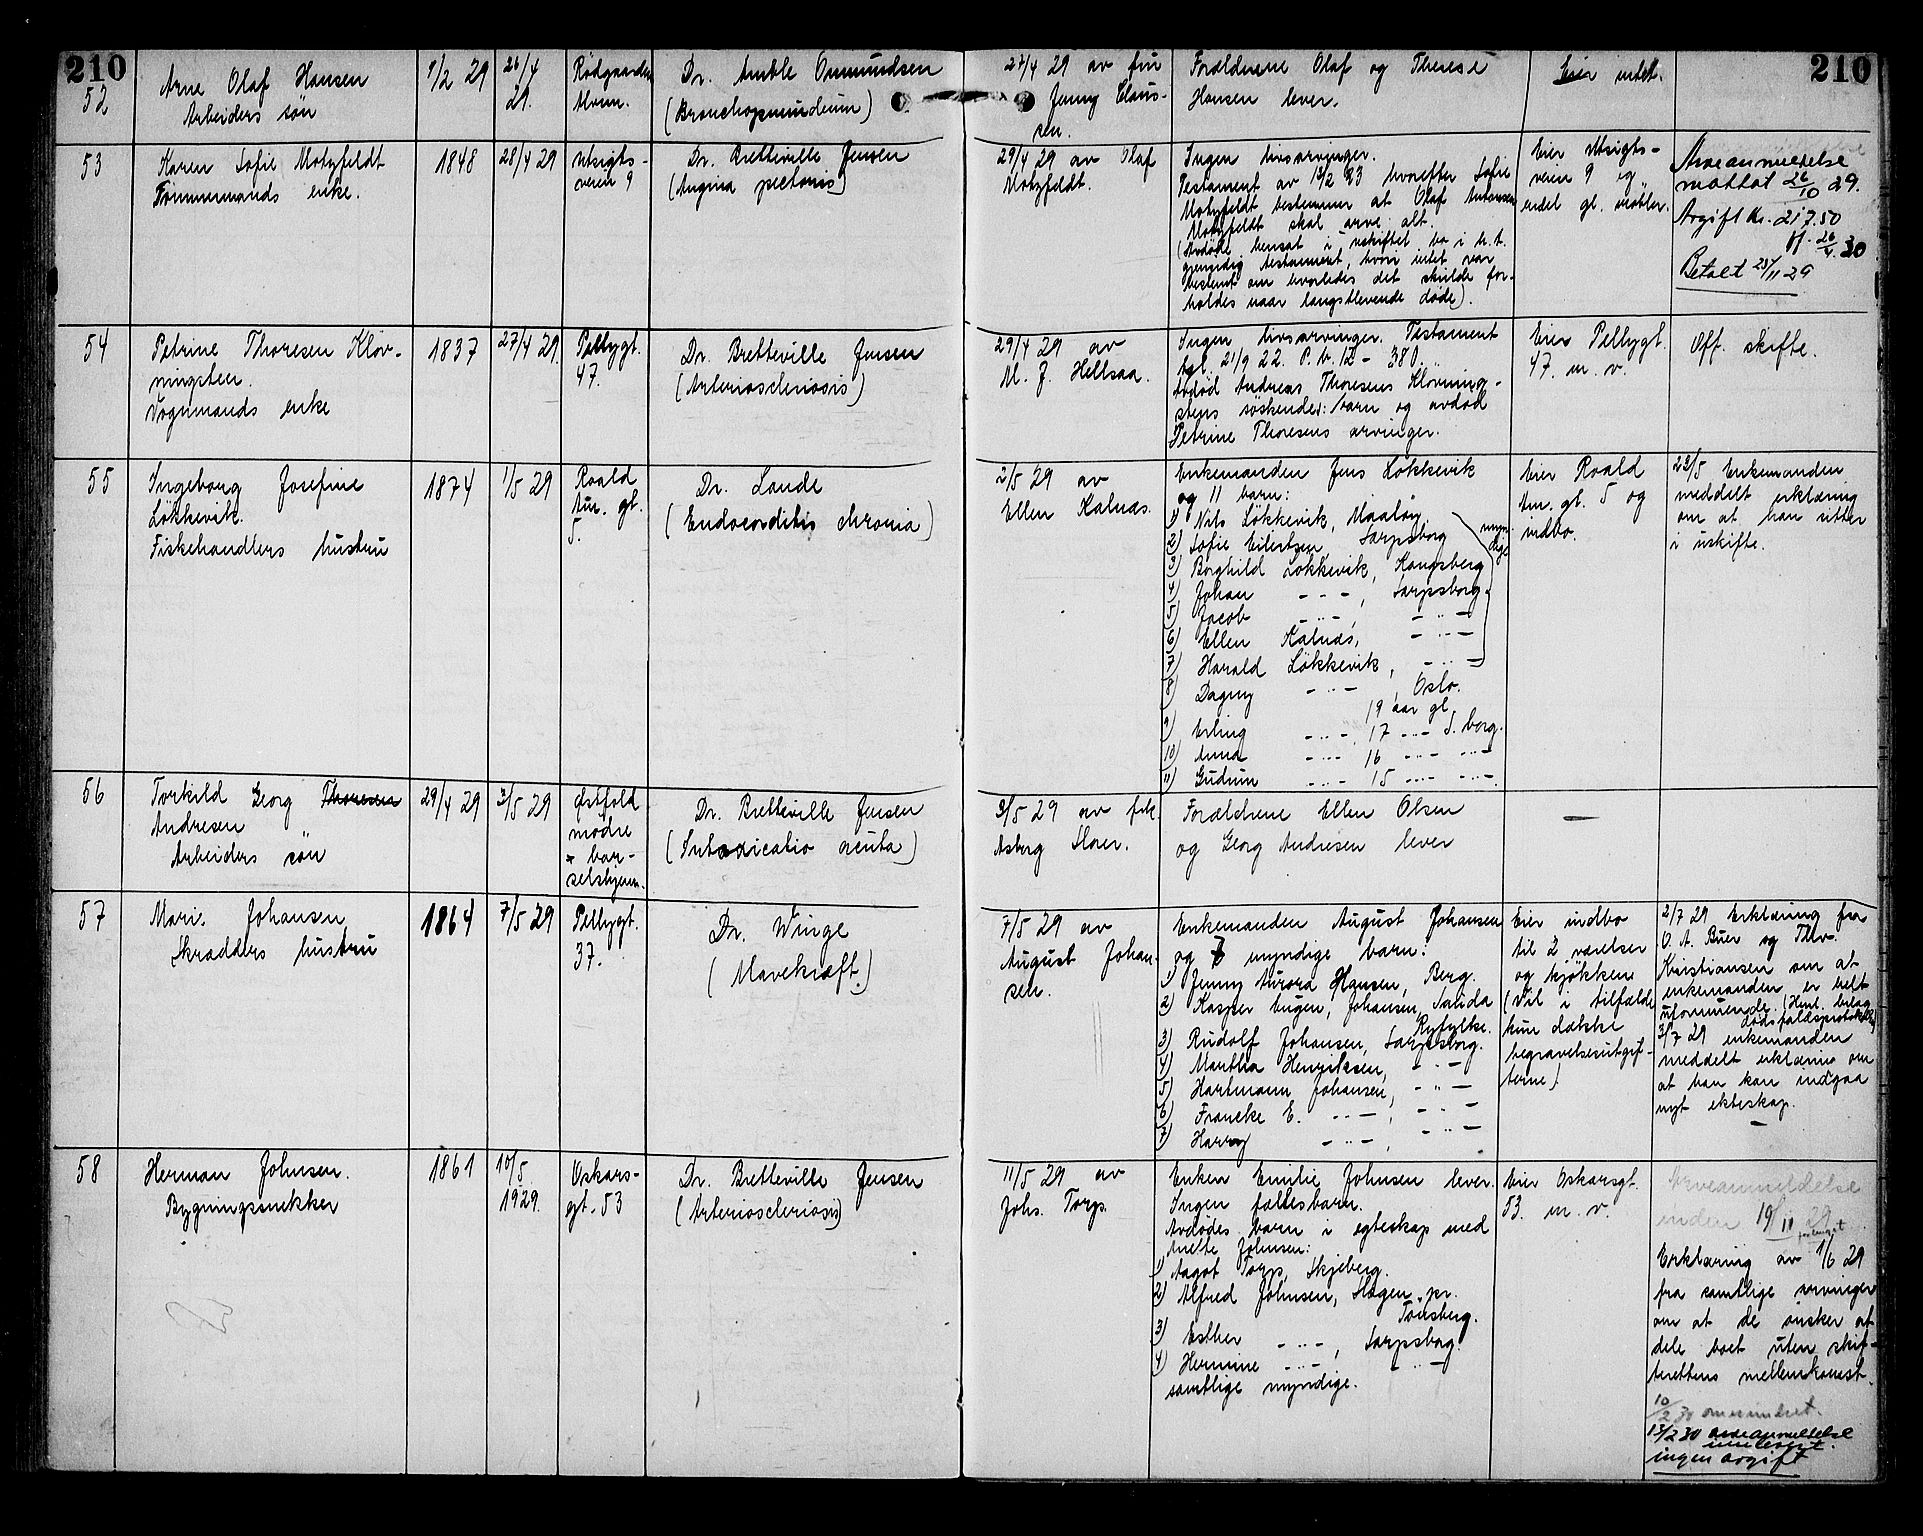 210
210
52
Arne Olaf Hansen
Arbeiders søn
9/2 29
26/4
29.
Rødgaarden
Alvim.
Dr. Amble Ommundsen
(Bronchopneumdeum)
27/4 29 av fru
Jenny Claus-
sen.
Forældrene Olaf og Therese
Hansen lever.
Eier intet.
53
Karen Sofie Motzfeldt
Tømmermands enke.
1848
28/4 29
Utsigts-
veien 9
Dr. Bretteville Jensen
(Angina pectoris)
29/4 29 av Olaf
Motzfeldt.
Ingen livsarvinger.
Testament av 13/2 23 hvorefter Sofie
Motzfeldt bestemmer at Olaf
Motzfeldt skal arve alt.
(Avdøde hensat i uskiftet bo i h. t.
gjensidig testament, hvori intet var
bestemt om hvorledes det skulde for-
holdes naar længstlevende døde).
Eier Utsigts-
veien 9 og
endel gl. møbler.
Arveanmeldelse
mottat 26/10 29.
Avgift Kr. 217.50
ff. 26/4. 30
Betalt 25/11 29
54
Petrine Thoresen Kløv-
ningsten.
Vognmands enke
1837
27/4 29.
Pellygt.
47.
Dr. Bretteville Jensen
(Arterioscleriosis)
29/4 29 av
M. J. Hellsaa.
Ingen livsarvinger. Testament
tgl. 21/9 22. P. b. 12 - 380.
Avdød Andreas Thoresens Kløvning-
stens søskendes barn og avdød
Petrine Thoresens arvinger.
Eier Pellygt.
47. m. v.
Off. skifte.
55
Ingeborg Josefine
Løkkevik.
Fiskehandlers hustru
1874
1/5 29
Roald
Am. gt.
5.
Dr. Lande
(Endocarditis chronia)
2/5 29 av
Ellen Kalnæs.
Enkemanden Jens Løkkevik
og 11 barn:
1) Nils Løkkevik, Maaløy
2) Sofie Eilertsen, Sarpsborg
myn-
dige
3) Borghild Løkkevik, Kongsberg
4) Johan - " - , Sarpsborg.
5) Jacob - " - , - " -
6) Ellen Kalnæs, - " -
7) Harald Løkkevik, - " -
8) Dagny - " - , Oslo.
19 aar gl.
9) Erling - " - , 17 - " - S.borg.
10) Anna - " - 16 - " - - " -
11) Gudrun - " - 15 - " - - " -
Eier Roald
Am. gt. 5 og
indbo.
23/5 Enkemanden
meddelt erklæring
om at han sitter
i uskifte.
56
Torkild Georg Thoresen
Andresen
Arbeiders søn
29/4 29
3/5 29
Østfold
mødre
& bar-
selshjem.
Dr. Bretteville Jensen
(Intoxicatio acuta)
3/5 29 av frk.
Asberg Sloer.
Forældrene Ellen Olsen
og Georg Andresen lever
—
57
Mari. Johansen
Skrædders hustru
1864
7/5 29
Pellygt.
37.
Dr. Winge
(Mavekræft.)
7/5 29 av
August Johan-
sen.
Enkemanden August Johansen
og 7 myndige barn:
1) Jenny Aurora Hansen, Berg.
2) Kasper Eugen, Johansen, Sauda
Ryfylke.
3) Rudolf Johansen, Sarpsborg.
4) Martha Henriksen, - " -
5) Hartmann Johansen, - " -
6) Francke E. - " - , - " -
7) Harry - " - , - " -
Eier indbo
til 2 værelser
og kjøkken
(Vil i tilfælde
kun dække
begravelsesutgif-
terne).
2/7 29 Erklæring fra
O. A. Buer og Thv.
Kristiansen om at
enkemanden er helt
uformuende. (Henl. bilag
dødsfaldsprotokollen)
3/7 29 enkemanden
meddelt erklæring om
at han kan indgaa
nyt ekteskap.
58
Herman Johnsen.
Bygningssnekker
1861
10/5
1929.
Oskars-
gt. 53
Dr. Bretteville Jensen
(Arteriosclerosis)
11/5 29 av
Johs. Torp.
Enken Emilie Johnsen lever.
Ingen fællesbarn.
Avdødes barn i egteskap med
Anette Johnsen:
1) Aagot Torp, Skjeberg.
2) Alfred Johnsen, Slagen pr.
Tønsberg.
3) Esther - " - , Sarpsborg.
4) Hermine - " - - " -
samtlige myndige.
Eier Oskarsgt.
53. m. v.
Arveanmeldelse
inden 19/11 29
forlenget
Erklæring av 1/6 29
fra samtlige arvinger
om at de ønsker at
dele boet uten skif-
terettens mellemkomst.
10/2 30 omsendt.
13/2 30 arveanmeldelse
innlevert.
ingen avgift